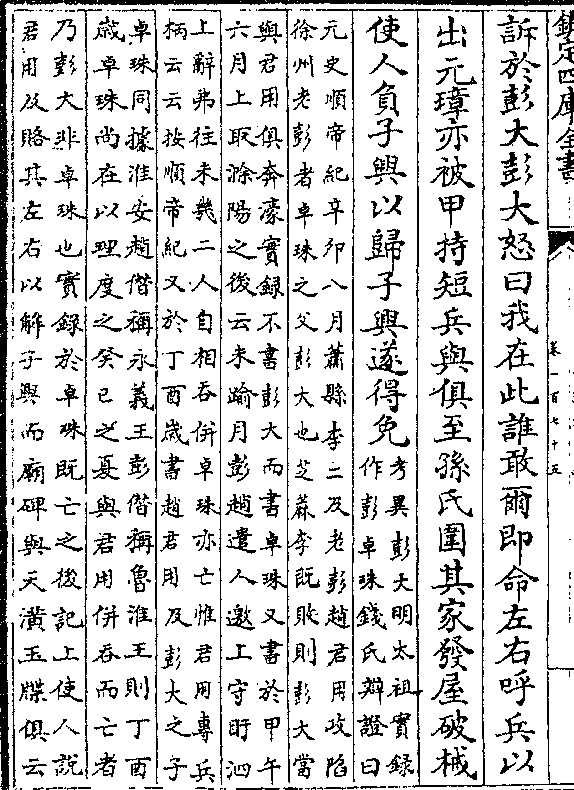 欽定四庫全書
卷一百七十五
訴於彭大彭大怒曰我在此誰敢爾即命左右呼兵以
出元璋亦被甲持短兵與俱至孫氏圍其家發屋破械
使人負子興以歸子興遂得免
考異彭大明太祖實録
作彭卓珠錢氏辯證曰
元史順帝紀辛卯八月蕭縣李二及老彭趙君用攻陷
徐州老彭者卓珠之父彭大也芝蔴李既敗則彭大當
與君用俱奔濠實録不書彭大而書卓珠又書於甲午
六月上取滁陽之後云未踰月彭趙遣人邀上守盱泗
上辭弗往未幾二人自相吞併卓珠亦亡惟君用專兵
柄云云按順帝紀又於丁酉歲書趙君用及彭大之子
卓珠同據淮安趙僭稱永義王彭僭稱魯淮王則丁酉
歲卓珠尚在以理度之癸巳之夏與君用併吞而亡者
乃彭大非卓珠也實録於卓珠既亡之後記上使人說
君用及賂其左右以解子興而廟碑與天潢玉牒俱云